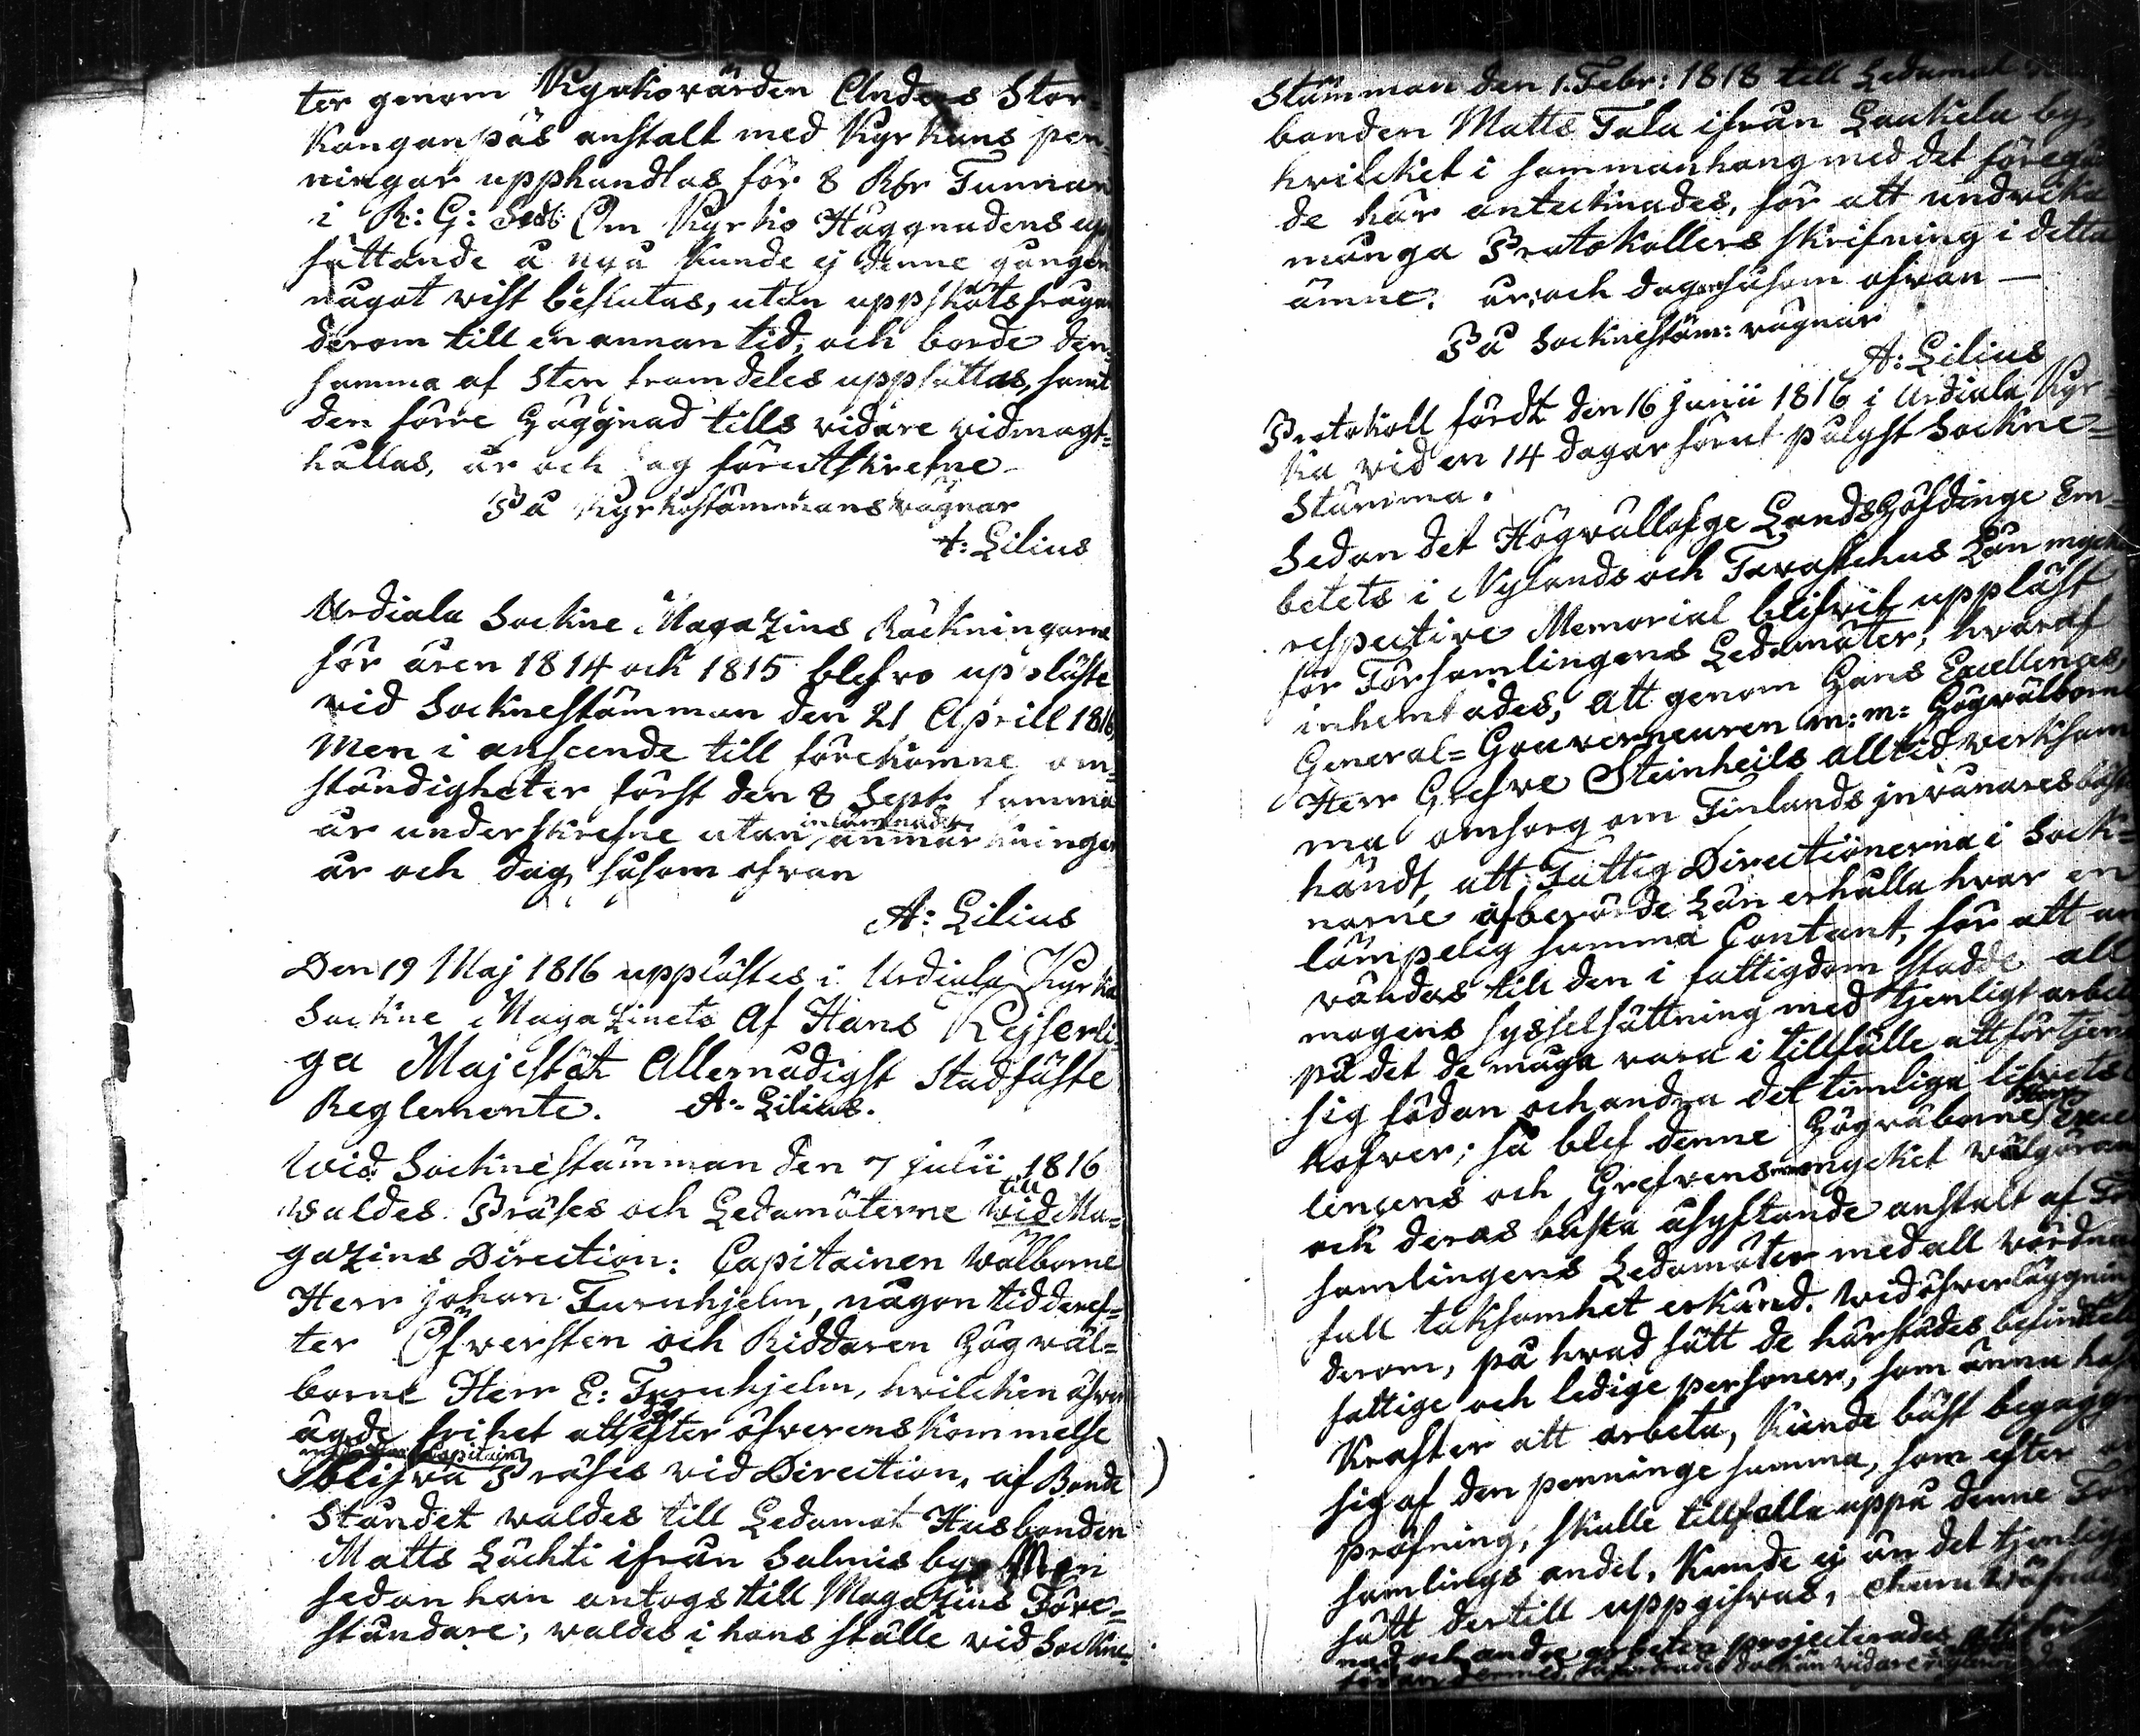 ter genom Kyrkovärden Anders Stor-
Kanganpäs anstalt med Kyrkans pen-
ningar upphandlas för 8 Rbr Tunnan
i R: G: Sedl: Om Kyrko Häggnadens upp
sättande å nya kunde ej denne gången
något vist beslutas, utan uppsköts frågan
derom till en annan tid, och borde den-
samma af Sten framdeles uppsättas, samt
den förre Häggnad tills vidare vidmagt-
hållas, år och dag förutskrefne
På Kyrkostämmans vägnar
A: Lilius
Urdiala Sockne Magazins Räckningarne
för åren 1814 och 1815 blefvo uppläste
vid Socknestämman den 21 Aprill 1816,
Men i anseende till förekomne om-
ständigheter först den 8 Sept: samma
år underskrefne utan inlämnade anmärkningar
år och dag såsom ofvan
A: Lilius
Den 19 Maj 1816 upplästes i Urdiala Kyrka
Sockne Magazinets Af Hans Kejserli-
ga Majestät Allernådigst Stadfäste
Reglemente. A: Lilius.
Wid Socknestämman den 7 julii 1816
valdes Præses och Ledamöterne till wid Ma-
gazins Direction: Capitainen Wälborne
Herr johan Furuhjelm, någon tid deref-
ter Öfversten och Riddaren Högwäl-
borne Herr E: Furuhjelm, hvilcken äfven
ägde frihet att efter öfverenskommelse
blifva Præses vid Direction, af Bonde
Ståndet valdes till Ledamot Husbonden
Matts Lächti ifrån Salmis by, Men
sedan han antogs till Magazins Före-
ståndare, valdes i hans ställe vid Sockne-
Stämman den 1. Febr: 1818 till Ledamot
bonden Matts Tala ifrån Laukela by,
hvilcket i sammanhang med det föregåen
de här antecknades, för att undvika
många Protokollers skrifning i detta
ämne. år och dagar såsom ofvan —
På Socknestäm: vägnar
A: Lilius
Protokoll fördt den 16 junii 1816 i Urdiala Kyr-
ka vid en 14 dagar förut pålyst Sockne-
Stämma.
Sedan det Högvällofge LandsHöfdinge Em-
betets i Nylands och Tavastehus Län mycket
respective Memorial blifvit uppläst
för Församlingens Ledamöter, hvaraf
inhemtades, att genom Hans Excellences,
General-Gouverneuren m: m: Högvälborne
Herr Grefve Steinheils alltid verksam
ma omsorg om Finlands jnvånares bästa
händt, att Fattig Directionerna i Sock-
narne af berörde Län erhålla hvar en
lämpelig summa Contant, för att an
vändas till den i fattigdom stadde all
mogens sysselsättning med tjenligt arbete
på det de måga vara i tillfälle att förtjena
sig födan och andra det timliga lifvets be
hofver; så blef denne Högvälborne Herr Excel
lencens och Grefvens mycket wälgörande
och deras bästa åsyftande anstalt af För
samlingens Ledamöter med all vördnads
full taksamhet erkänd. Wid öfverläggning
derom, på hvad sätt de härstädes befintelige
fattige och ledige personer, som ännu hafva
Krafter att arbeta, kunde bäst begagna
sig af den penninge summa, som efter
pröfning, skulle tillfalla uppå denne För
samlings andel, kunde ej än det tjenligaste
sätt dertill uppgifvas,
nad och andre arbeten projecterades